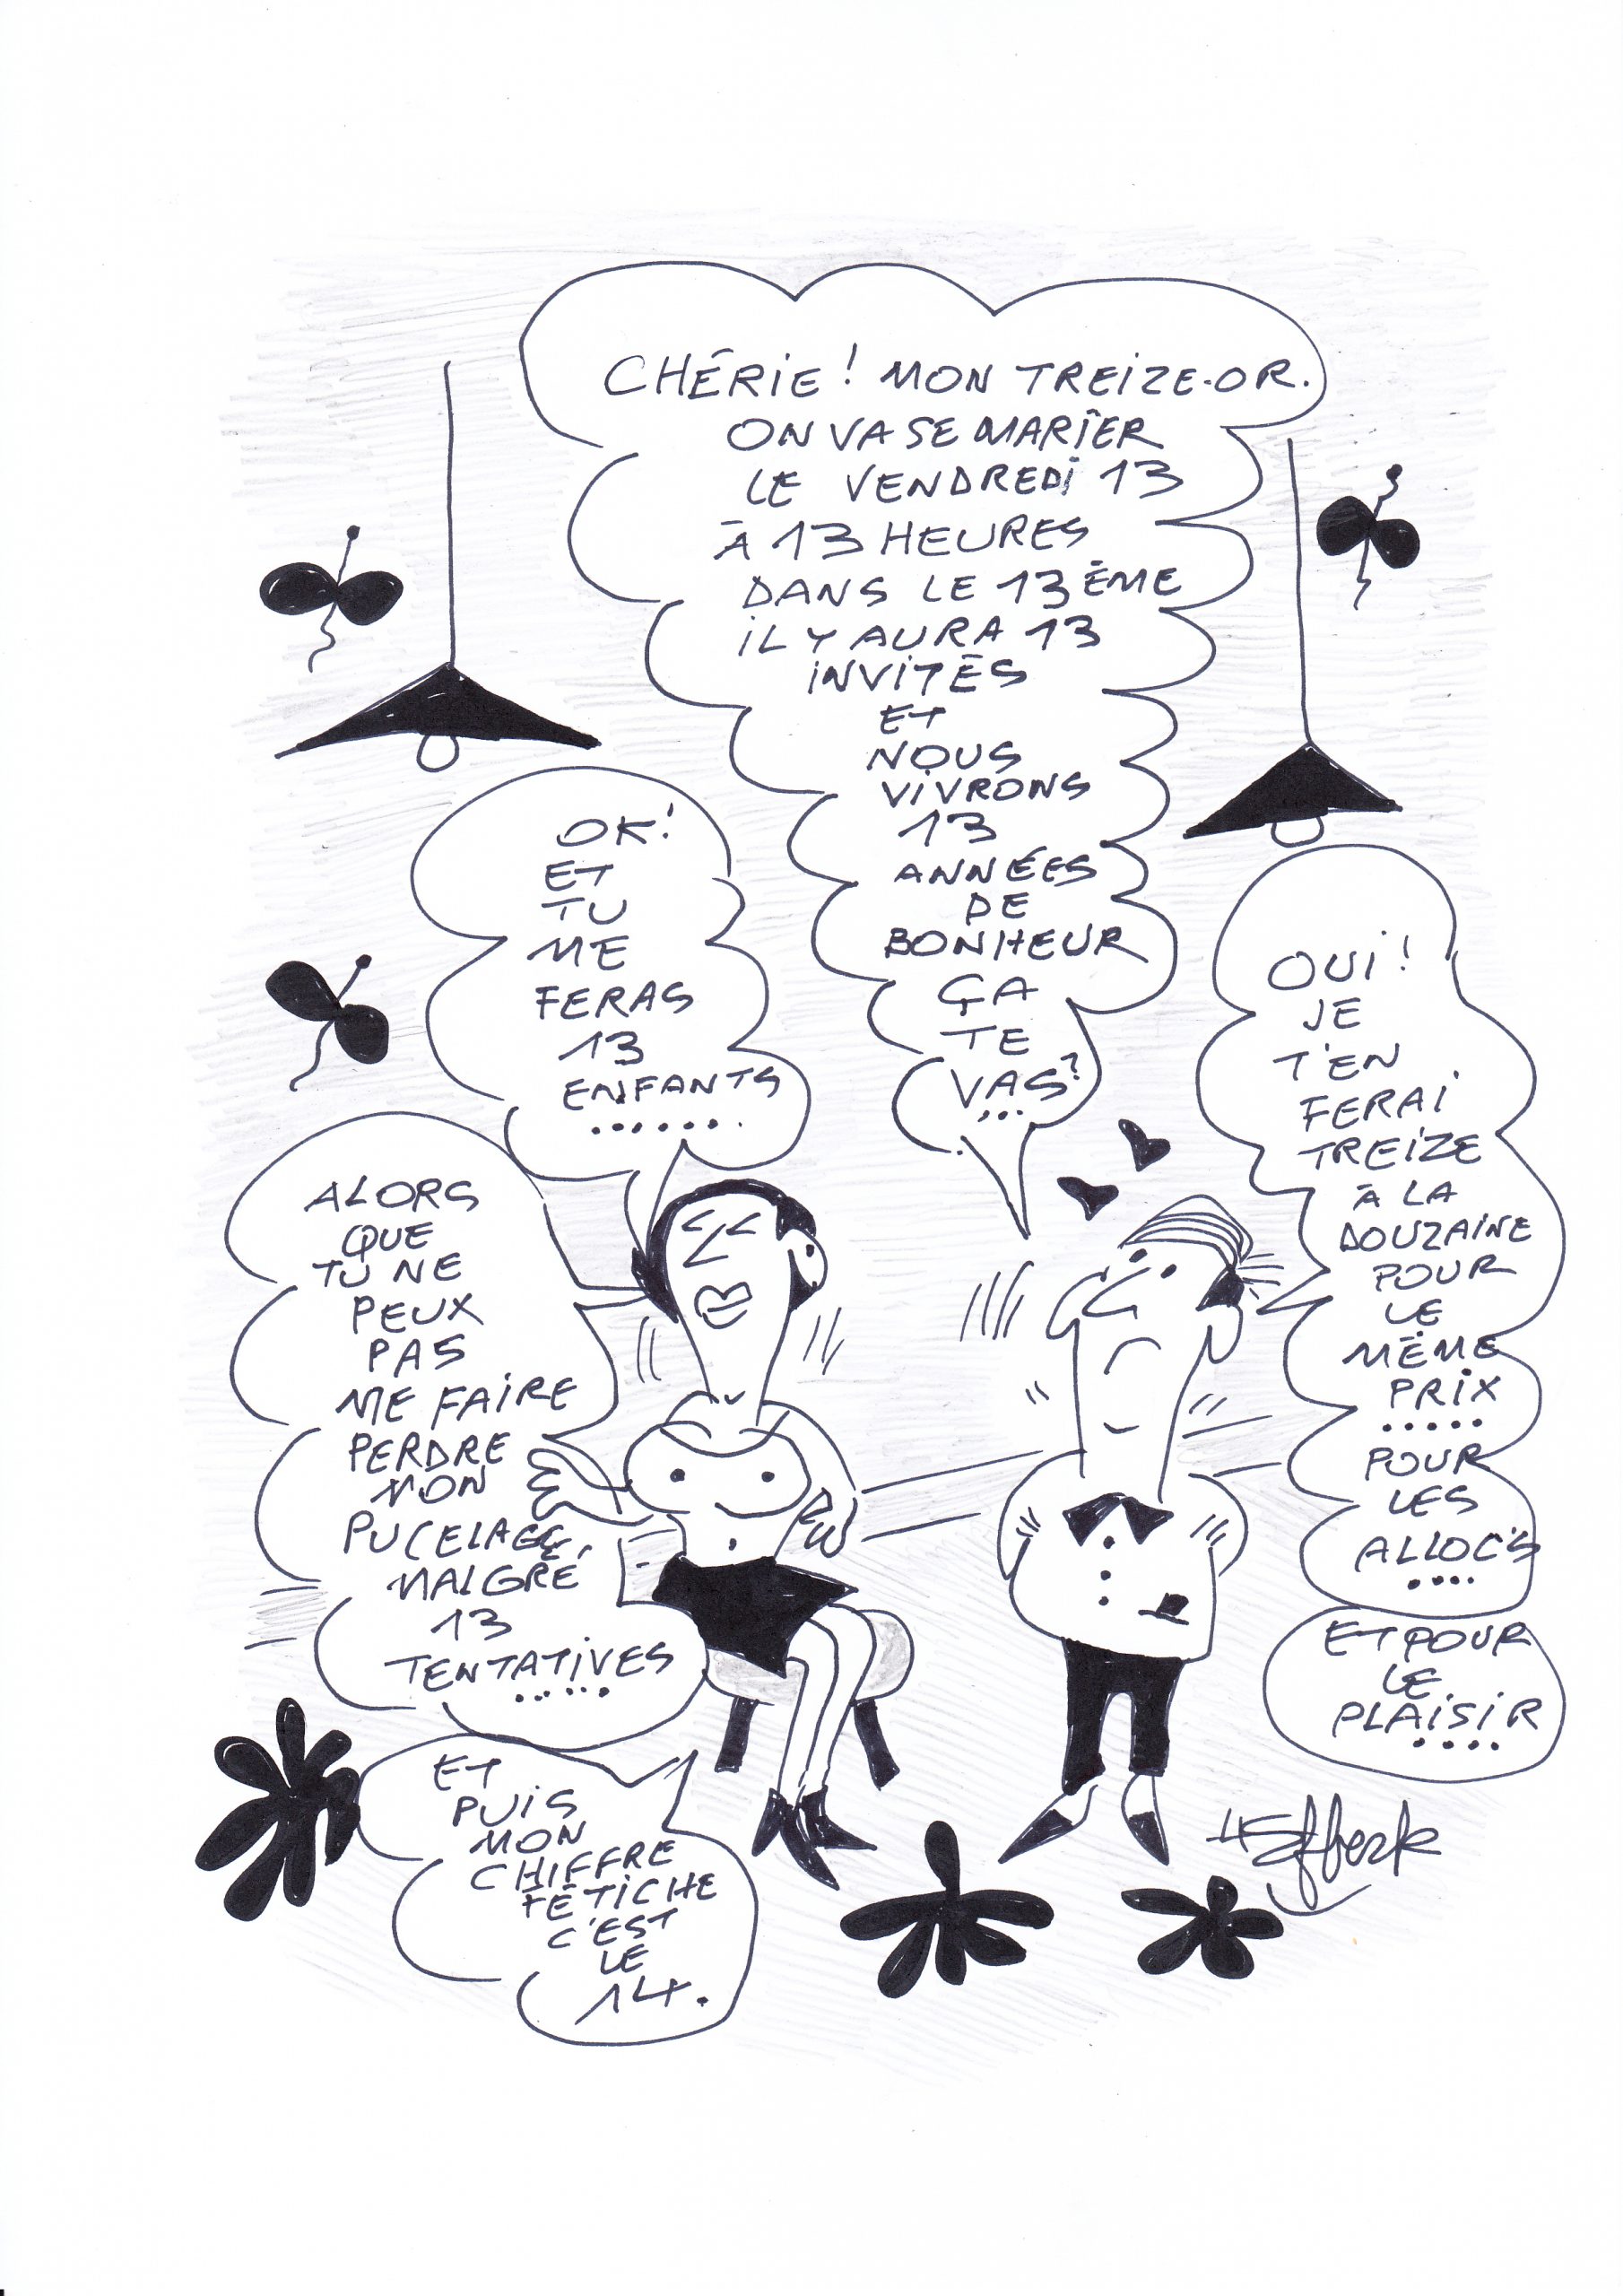 CHÉRIE! MON TREIZE-OR.
ON VA SE MARIER
LE VENDREDI 13
À 13 HEURES
DANS LE 13ÈME
IL Y AURA 13
INVITÉS
ET
NOUS
VIVRONS
13
ANNÉES
DE
BONHEUR
ÇA
TE
VAS?
...
OK!
ET
TU
ME
FERAS
13
ENFANTS
......
OUI!
JE
T'EN
FERAI
TREIZE
À LA
DOUZAINE
POUR
LE
MÊME
PRIX
.....
POUR
LES
ALLOC'S
....
ET POUR
LE
PLAISIR
....
ALORS
QUE
TU NE
PEUX
PAS
ME FAIRE
PERDRE
MON
PUCELAGE,
MALGRÉ
13
TENTATIVES
.....
ET
PUIS
MON
CHIFFRE
FÉTICHE
C'EST
LE
14.